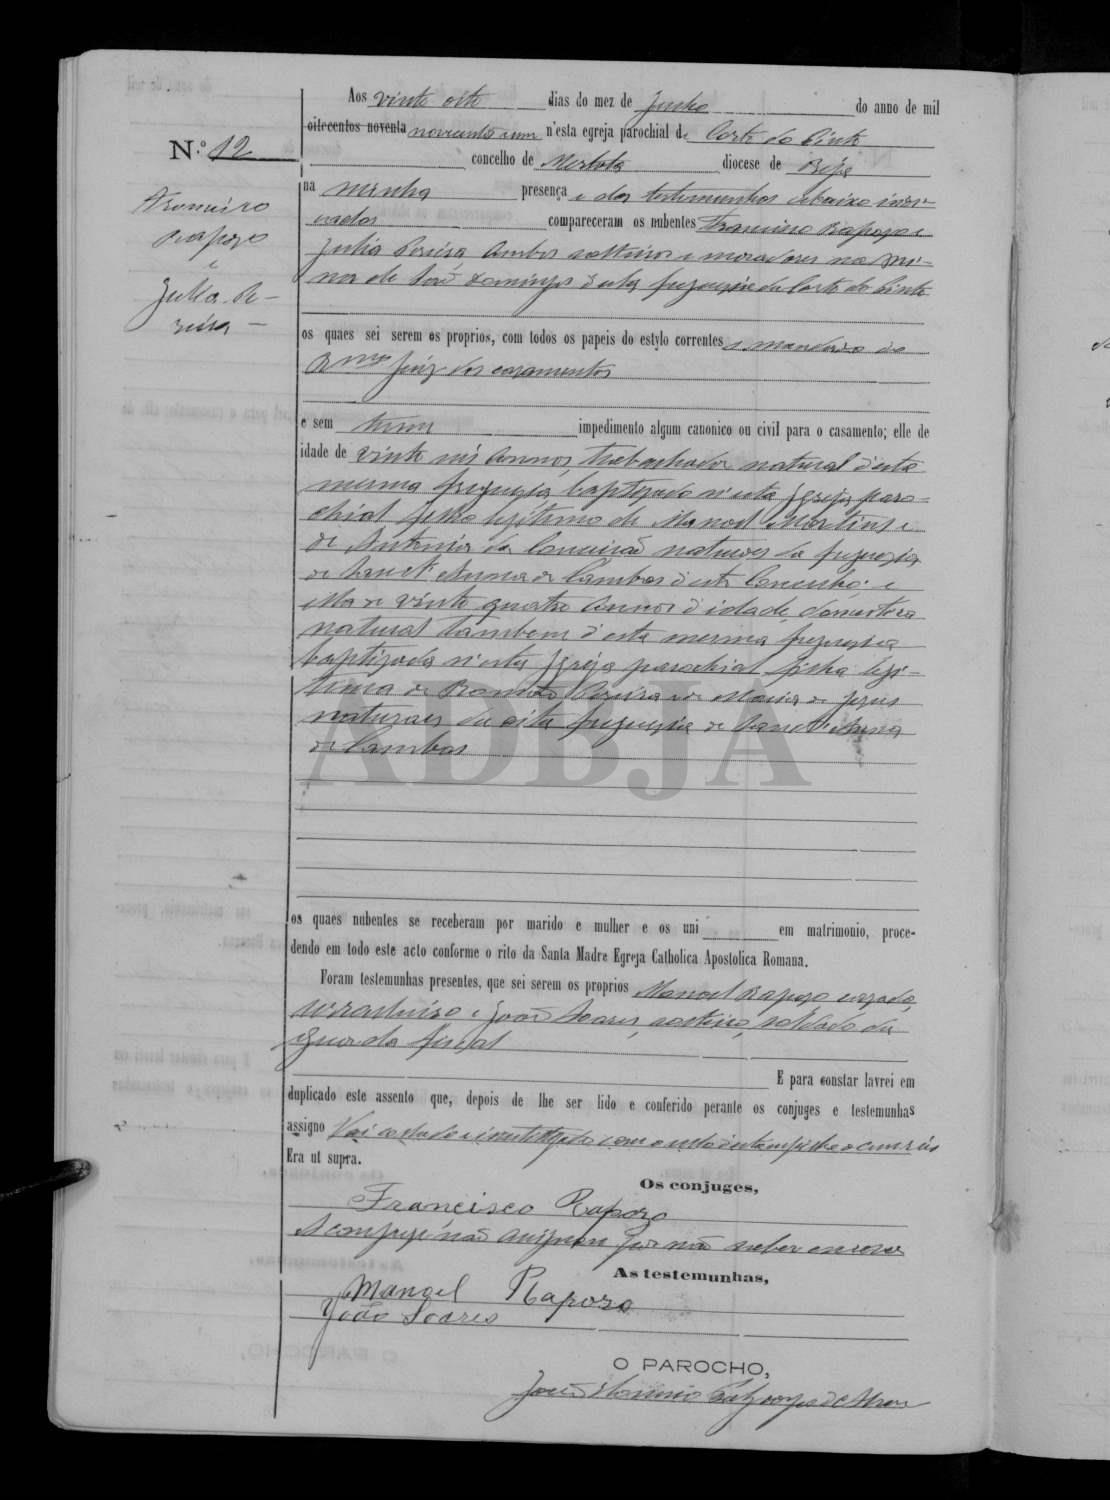 Aos vinte oito dias do mez de Junho do anno de mil
oitecentos noventa novecentos um n'esta egreja parochial de Corte do Pinto
Nº 12
concelho de Mertola diocese de Beja
na minha presença e das testemunhas abaixo
compareceram os nubentes Francisco Rapozo e
Francisco
Rapozo
e
Julia Pe-
reira
Julia Pereira ambos solteiros e moradores na Mi-
na de São Domingos d'esta freguezia da Corte do Pinto
os quaes sei serem os proprios, com todos os papeis do estylo correntes e mandado do
Rmo Juiz dos casamentos
e sem impedimento algum canonico ou civil para o casamento; elle de
idade de vinte seis annos, trabalhador natural d'esta
mesma freguezia, baptizado n'esta Igreja paro-
chial filho legitimo de Manoel Martins e
de Antonia da Conceição naturaes da freguezia
de Sant'Anna de Cambas d'este Concelho: e
ella de vinte quatro annos d'idade, domestica
natural tambem d'esta mesma freguezia
baptizada n'esta Igreja parochial filha legi-
tima de Pereira e de Maria de Jesus
naturaes da dita freguezia de Sant'Anna
de Cambas
ADBJA
os quaes nubentes se receberam por marido e mulher e os uni em matrimonio, proce-
dendo em todo este acto conforme o rito da Santa Madre Egreja Catholica Apostolica Romana.
Foram testemunhas presentes, que sei serem os proprios Manoel Rapozo cazado,
e João Soares, solteiro, soldado da
guarda fiscal
E para constar lavrei em
duplicado este assento que, depois de lhe ser lido e conferido perante os conjuges e testemunhas
assigno Vai
Era ut supra.
Os conjuges,
Francisco Rapozo
A conjuge não assignou por não saber escrever
As testemunhas,
Manoel Rapozo
João Soares
O PAROCHO,
João